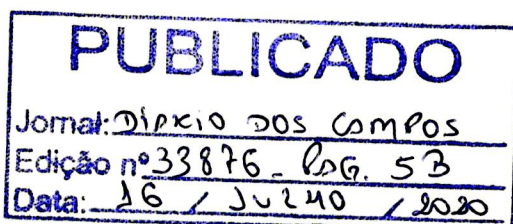 PUBLICADO
Jornal: DIÁRIO DOS CAMPOS
Edição nº 33876 - PÁG. 5B
Data: 16 / JULHO / 2020